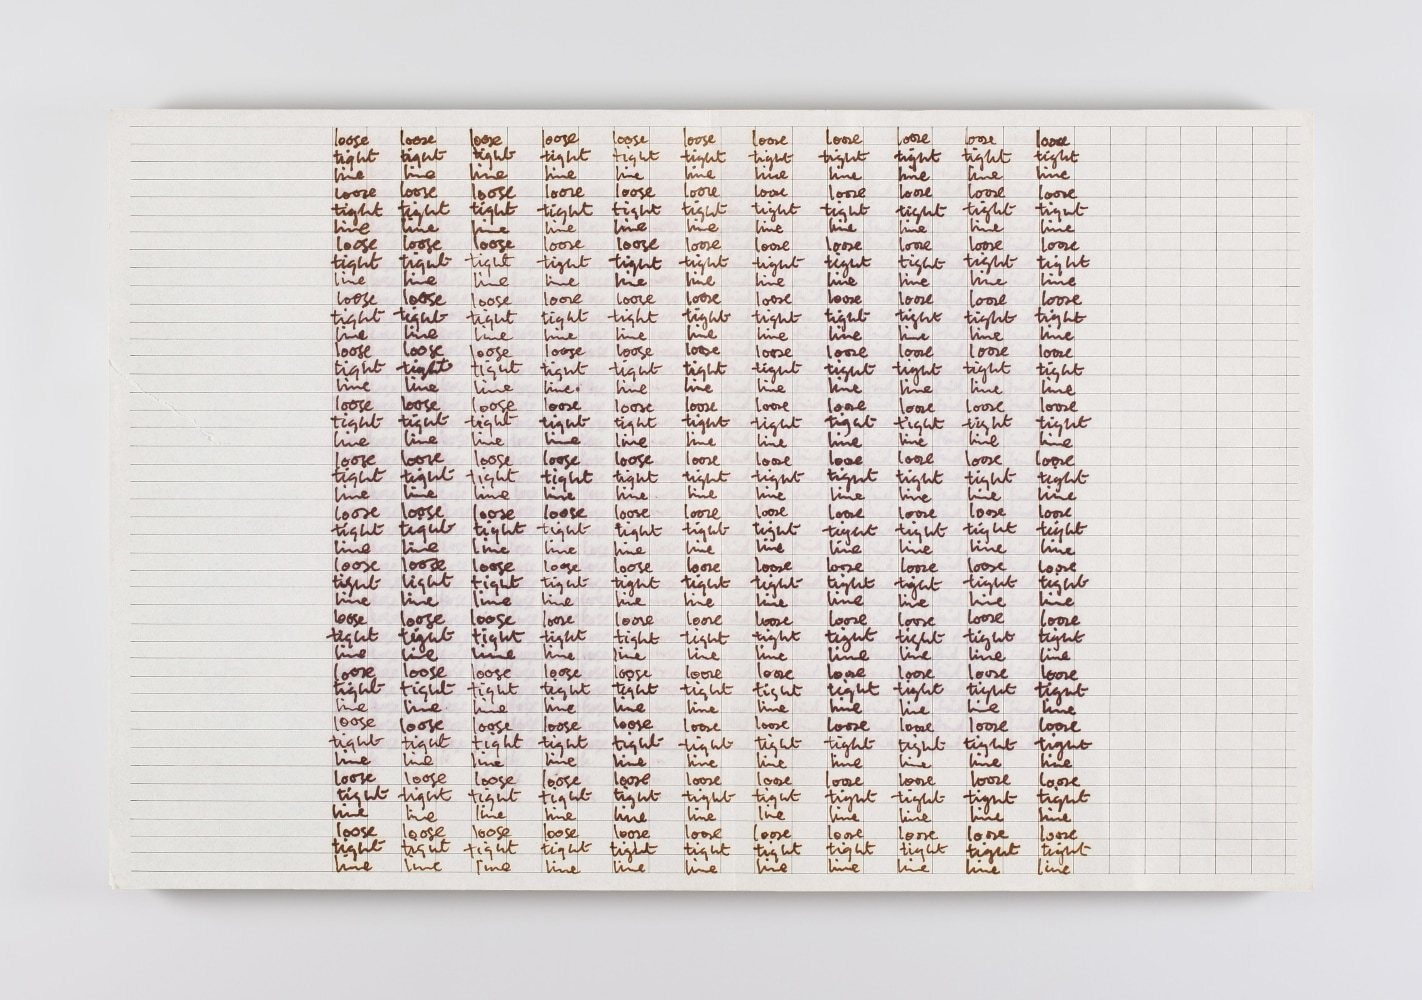 loose loose loose loose loose loose loose loose loose loose loose
tight tight tight tight tight tight tight tight tight tight tight
line line line line line line line line line line line
loose loose loose loose loose loose loose loose loose loose loose
tight tight tight tight tight tight tight tight tight tight tight
line line line line line line line line line line line
loose loose loose loose loose loose loose loose loose loose loose
tight tight tight tight tight tight tight tight tight tight tight
line line line line line line line line line line line
loose loose loose loose loose loose loose loose loose loose loose
tight tight tight tight tight tight tight tight tight tight tight
line line line line line line line line line line line
loose loose loose loose loose loose loose loose loose loose loose
tight tight tight tight tight tight tight tight tight tight tight
line line line line line line line line line line line
loose loose loose loose loose loose loose loose loose loose loose
tight tight tight tight tight tight tight tight tight tight tight
line line line line line line line line line line line
loose loose loose loose loose loose loose loose loose loose loose
tight tight tight tight tight tight tight tight tight tight tight
line line line line line line line line line line line
loose loose loose loose loose loose loose loose loose loose loose
tight tight tight tight tight tight tight tight tight tight tight
line line line line line line line line line line line
loose loose loose loose loose loose loose loose loose loose loose
tight tight tight tight tight tight tight tight tight tight tight
line line line line line line line line line line line
loose loose loose loose loose loose loose loose loose loose loose
tight tight tight tight tight tight tight tight tight tight tight
line line line line line line line line line line line
loose loose loose loose loose loose loose loose loose loose loose
tight tight tight tight tight tight tight tight tight tight tight
line line line line line line line line line line line
loose loose loose loose loose loose loose loose loose loose loose
tight tight tight tight tight tight tight tight tight tight tight
line line line line line line line line line line line
loose loose loose loose loose loose loose loose loose loose loose
tight tight tight tight tight tight tight tight tight tight tight
line line line line line line line line line line line
loose loose loose loose loose loose loose loose loose loose loose
tight tight tight tight tight tight tight tight tight tight tight
line line line line line line line line line line line